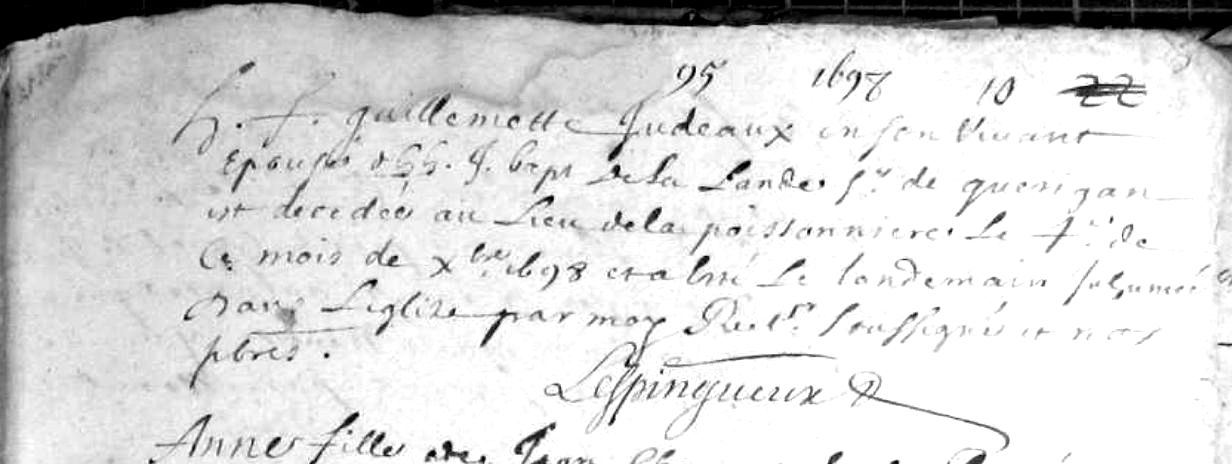 95 1698 10 22
h. f. guillemette Judeaux en son Vivant
Epouse d hh. J. bapt de la Lande Sr de querigan
est decedée au Lieu de la poissonniere Le 4e de
Ce mois de Xbre 1698 et a esté Le landemain Inhumée
dans L'eglize par moy Rectr Soussigné et nos
pbres.
Lespingueux
Anne fille de Jean